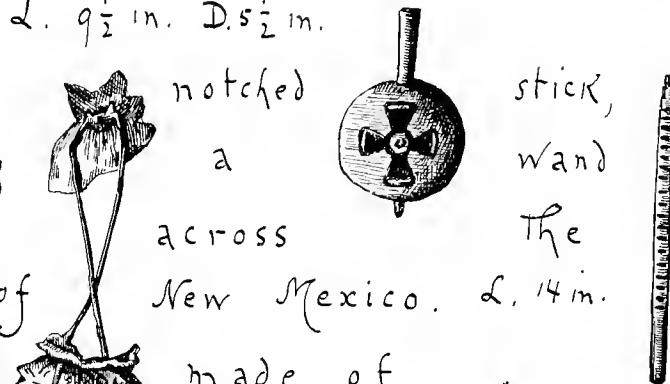 L. 9 1/2 in. D. 5 1/2 in.
notched stick,
a wand
across The
of New Mexico. L. 14 in.
made of